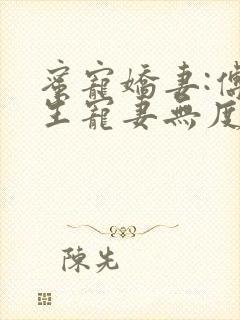 蜜寵嬌妻:傅
生寵妻無度
陳先